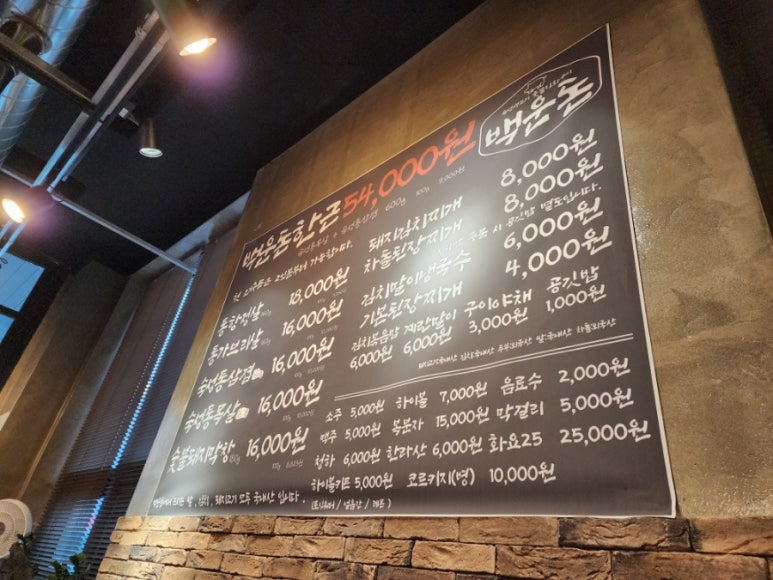 백운돈
백운돈한근 54,000원
600g
첫 주문은 2인분부터 가능합니다.
통항정살 18,000원
통가브리살 16,000원
숙성통삼겹 16,000원
숙성통목살 16,000원
숯불돼지막창 16,000원
돼지김치찌개 8,000원
차돌된장찌개 8,000원
김치말이냉국수 6,000원
기본된장찌개 4,000원
김치볶음밥 계란말이 구이야채 공깃밥
6,000원 6,000원 3,000원 1,000원
소주 5,000원 하이볼 7,000원 음료수 2,000원
맥주 5,000원 복분자 15,000원 막걸리 5,000원
청하 6,000원 한라산 6,000원 화요25 25,000원
하이볼키트 5,000원 코르키지(병) 10,000원